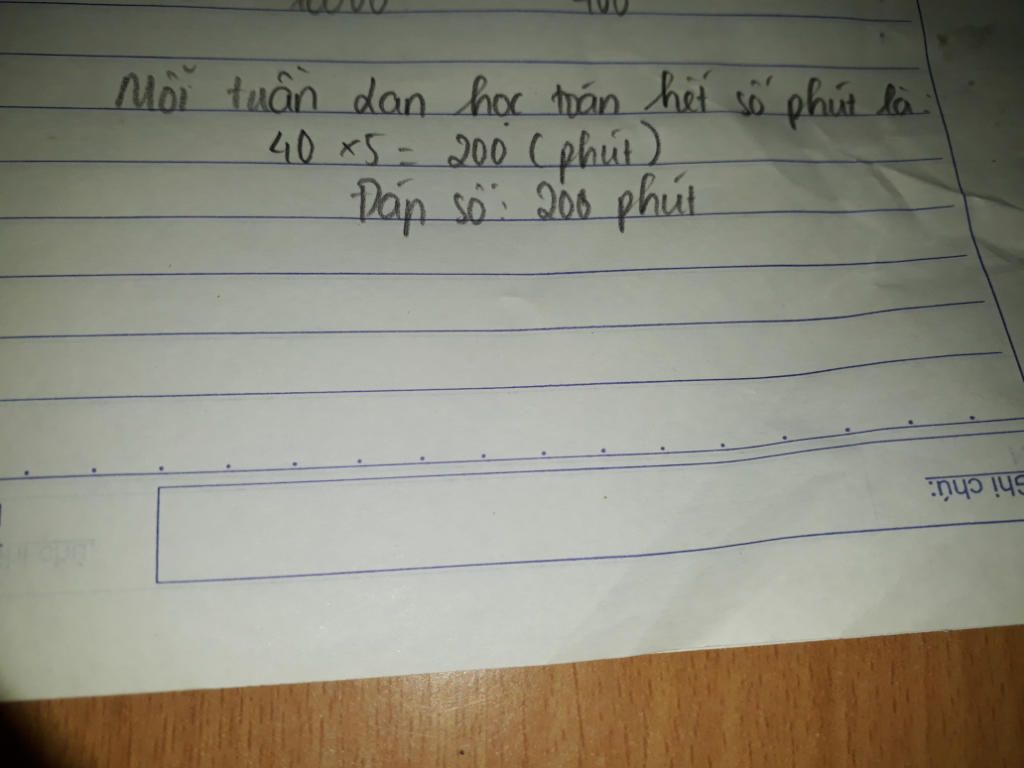 Mỗi tuần dan học toán hết số phút là:
40 × 5 = 200 (phút)
Đáp số: 200 phút
Ghi chú: